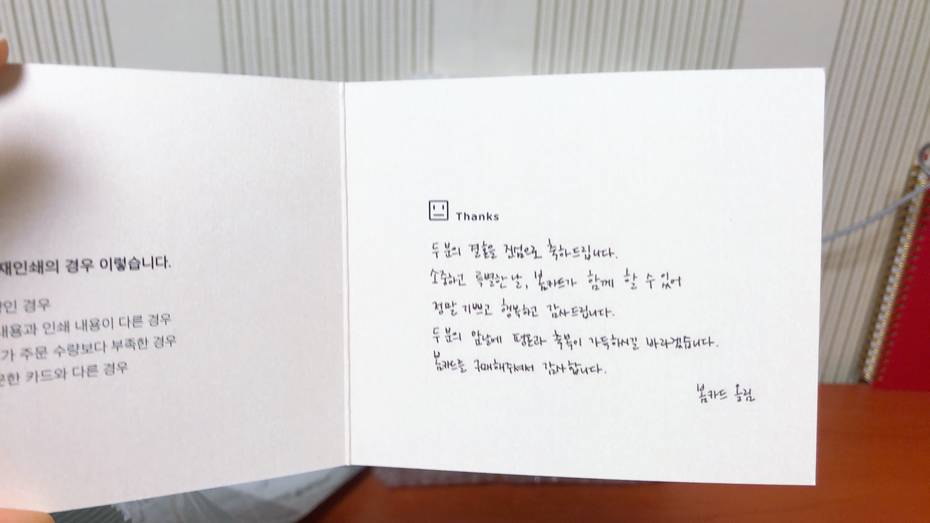 재인쇄의 경우 이렇습니다.
인 경우
내용과 인쇄 내용이 다른 경우
가 주문 수량보다 부족한 경우
문한 카드와 다른 경우
Thanks
두분의 결혼을 진심으로 축하드립니다.
소중하고 특별한 날, 봄카드가 함께 할 수 있어
정말 기쁘고 행복하고 감사드립니다.
두분의 앞날에 평온과 축복이 가득하시길 바라겠습니다.
봄카드를 구매해주셔서 감사합니다.
봄카드 올림